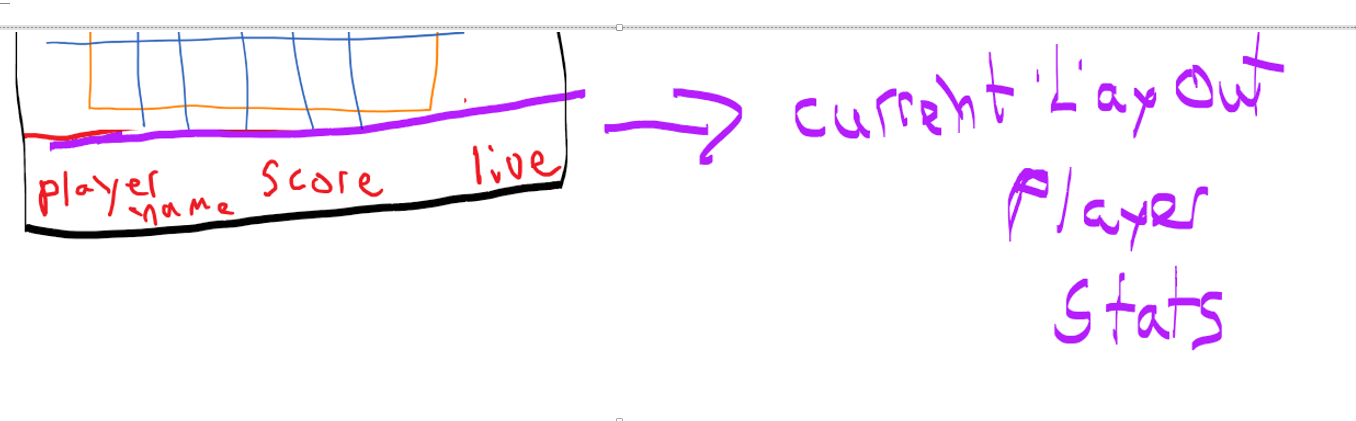 player
name
score
live
current Layout
Player
Stats